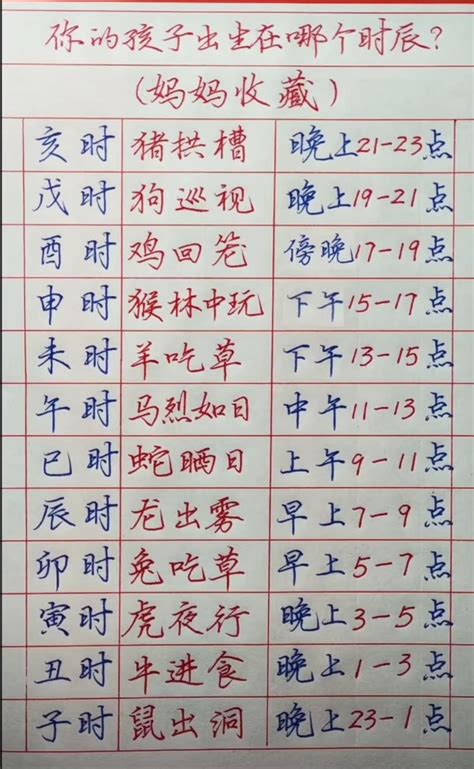 你的孩子出生在哪个时辰?
(妈妈收藏)
亥时 猪拱槽 晚上21-23点
戊时 狗巡视 晚上19-21点
酉时 鸡回笼 傍晚17-19点
申时 猴林中玩 下午15-17点
未时 羊吃草 下午13-15点
午时 马烈如日 中午11-13点
巳时 蛇晒日 上午9-11点
辰时 龙出雾 早上7-9点
卯时 兔吃草 早上5-7点
寅时 虎夜行 晚上3-5点
丑时 牛进食 晚上1-3点
子时 鼠出洞 晚上23-1点